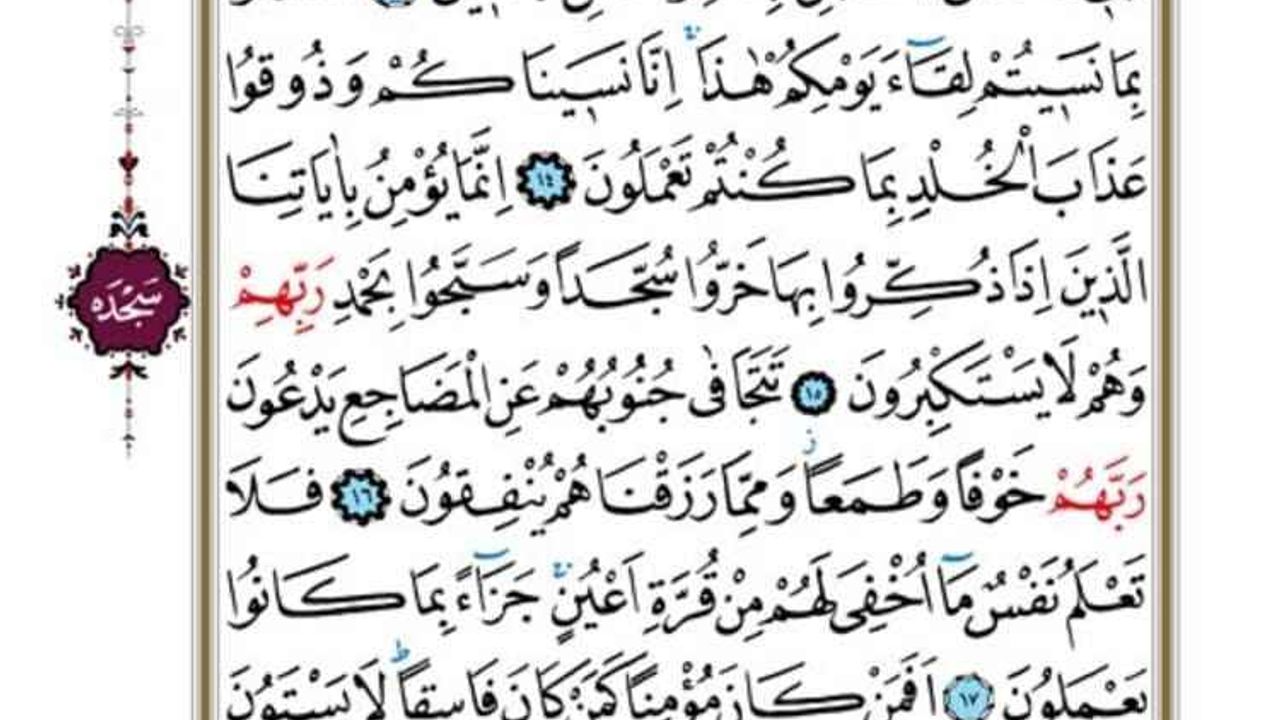 بِمَا نَسٖيتُمْ لِقَٓاءَ يَوْمِكُمْ هٰذَاۚ اِنَّا نَسٖينَاكُمْ وَذُوقُوا
عَذَابَ الْخُلْدِ بِمَا كُنْتُمْ تَعْمَلُونَ ﴿١٤﴾ اِنَّمَا يُؤْمِنُ بِاٰيَاتِنَا
الَّذٖينَ اِذَا ذُكِّرُوا بِهَا خَرُّوا سُجَّداً وَسَبَّحُوا بِحَمْدِ رَبِّهِمْ
سَجْدَه
وَهُمْ لَا يَسْتَكْبِرُونَ ﴿١٥﴾ تَتَجَافٰى جُنُوبُهُمْ عَنِ الْمَضَاجِعِ يَدْعُونَ
رَبَّهُمْ خَوْفاً وَطَمَعاًؗ وَمِمَّا رَزَقْنَاهُمْ يُنْفِقُونَ ﴿١٦﴾ فَلَا
تَعْلَمُ نَفْسٌ مَٓا اُخْفِيَ لَهُمْ مِنْ قُرَّةِ اَعْيُنٍۚ جَزَٓاءً بِمَا كَانُوا
يَعْمَلُونَ ﴿١٧﴾ اَفَمَنْ كَانَ مُؤْمِناً كَمَنْ كَانَ فَاسِقاًؕ لَا يَسْتَوُنَ